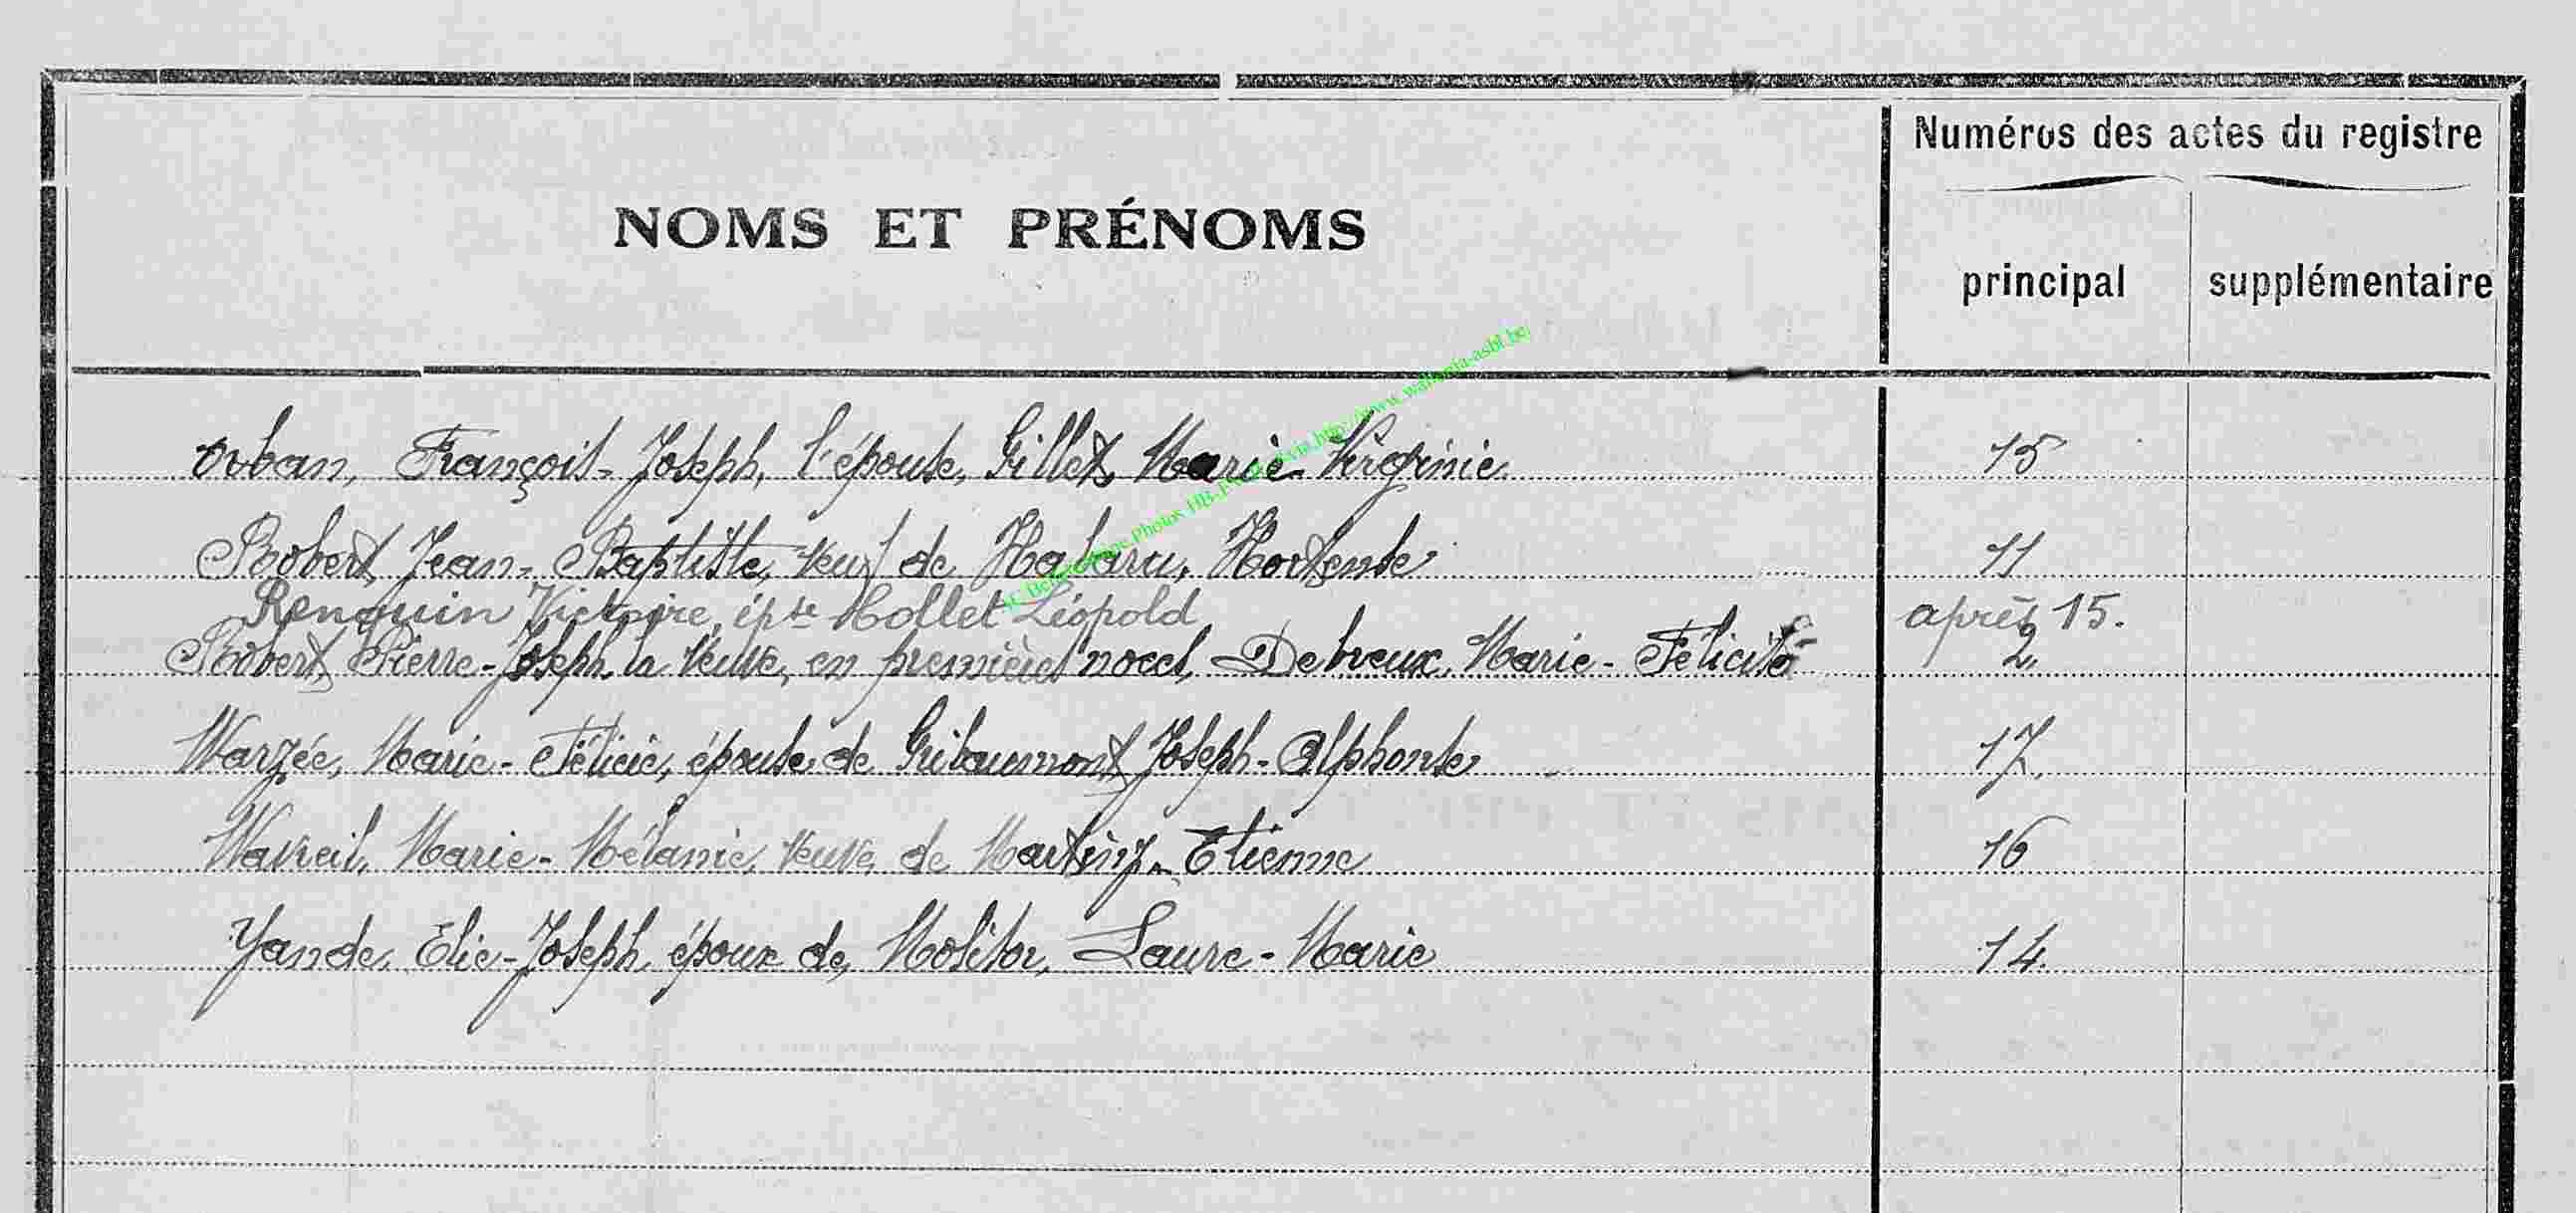 Numéros des actes du registre
NOMS ET PRÉNOMS
principal supplémentaire
Orban, François-Joseph, l'épouse, Gillet, Marie-Virginie 15
Robert, Jean-Baptiste, veuf de Habaru, Hortense 11
Renquin Victoire, épse Mollet Léopold après 15.
Robert, Pierre-Joseph, la veuve, en premières noces, Debreux, Marie-Félicité 2.
Warzée, Marie-Félicie, épouse de Gribaumont, Joseph-Alphonse 17.
Wavreil, Marie-Mélanie, veuve de Martinz, Etienne 16
Yande, Elie-Joseph, époux de, Molitor, Laure-Marie 14.